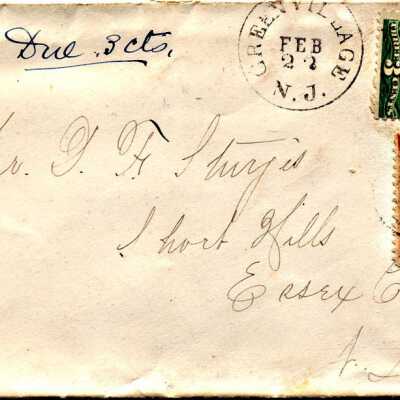 Due 3 cts.
GREEN VILLAGE
FEB
22
N. J.
3 CENTS
r. D. F. Sturgis
Short Hills
Essex C
N. J.